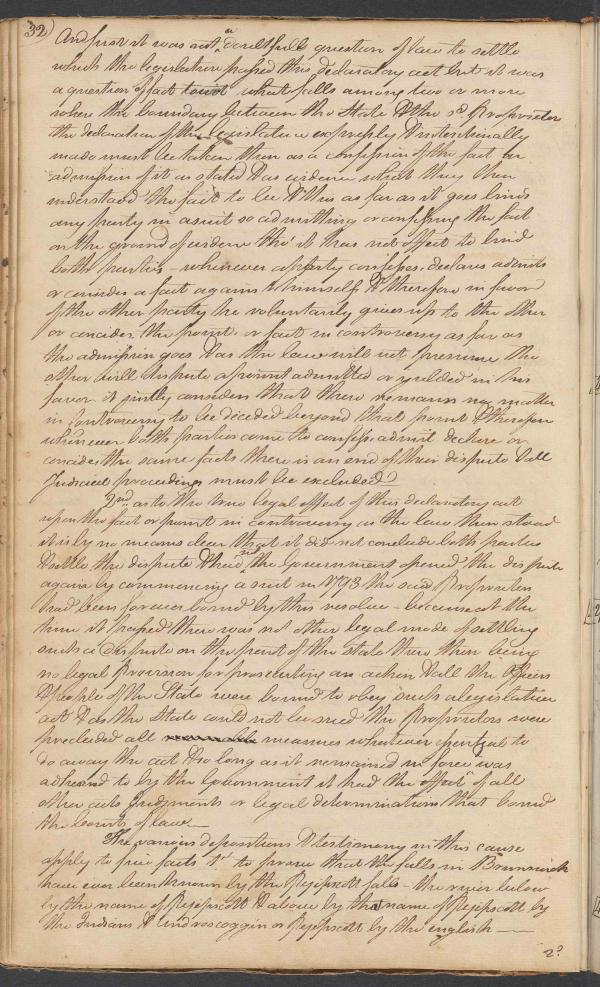 32)
And first it was not a doubtfull question of law to settle
which the legislature passed this declaratory act but it was
a question of fact to wit what falls among two or more
where the boundary between the State & the sd Proprietor
the declaration of the Legislature expressly & intentionally
made must be taken then as a confession of the fact or
admission of it as stated & as evidence what they then
understood the fact to be & this as far as it goes binds
any party in a suit so admitting or confessing the fact
on the ground of evidence tho' it has not effect to bind
both parties - whenever a party confesses, declares admits
or concides a fact against himself & therefore in favor
of the other party he voluntarily gives up to the other
or concides the point or fact in controversy as far as
the admission goes & as the law will not presume the
other will dispute a point admitted or yielded in his
favor it justly considers that there remains no matter
in controversy to be decided beyond that point & therefore
whenever both parties come to confess admit declare or
concide the same facts there is an end of their dispute & all
Judicial proceedings must be excluded
2nd as to the true legal effect of this declaratory act
upon the fact or point in controversy as the law then stood
it is by no means clear that it did not conclude both parties
& settle the dispute & had not the Government opened the dispute
again by commencing a suit in 1793 the said Proprietors
had been forever bound by this resolve - because at the
time it passed there was not other legal mode of settling
such a dispute on the part of the State there then being
no legal Provision for prosecuting an action & all the Officers
& people of the State were bound to obey such a legislative
act & as the State could not be sued the Proprietors were
precluded all measures whatever to
do away the act & so long as it remained in force was
adhered to by the Government it had the effect of all
other acts Judgments or legal determinations that bound
the courts of law -
The various depositions & testimony in this cause
apply to facts 1st to prove that the falls in Brunswick
have ever been known by the Pejepscott falls - the river below
by the name of Pejepscott & above by the name of Pejepscott by
the Indians & Androscoggin or Pejepscott by the english -
2d